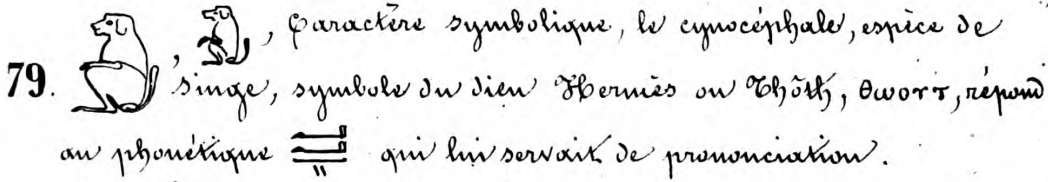 79. , , Caractère symbolique, le cynocéphale, espèce de
singe, symbole du dieu Hermès ou Thôth, ⲑⲱⲟⲩⲧ, répond
au phonétique qui lui servait de prononciation.